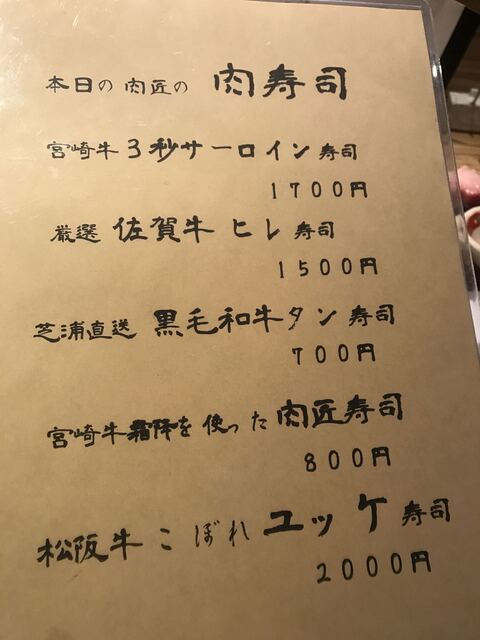 本日の肉匠の 肉寿司
宮崎牛3秒サーロイン寿司
1700円
厳選 佐賀牛 ヒレ 寿司
1500円
芝浦直送 黒毛和牛タン 寿司
700円
宮崎牛霜降を使った肉匠寿司
800円
松阪牛こぼれユッケ寿司
2000円